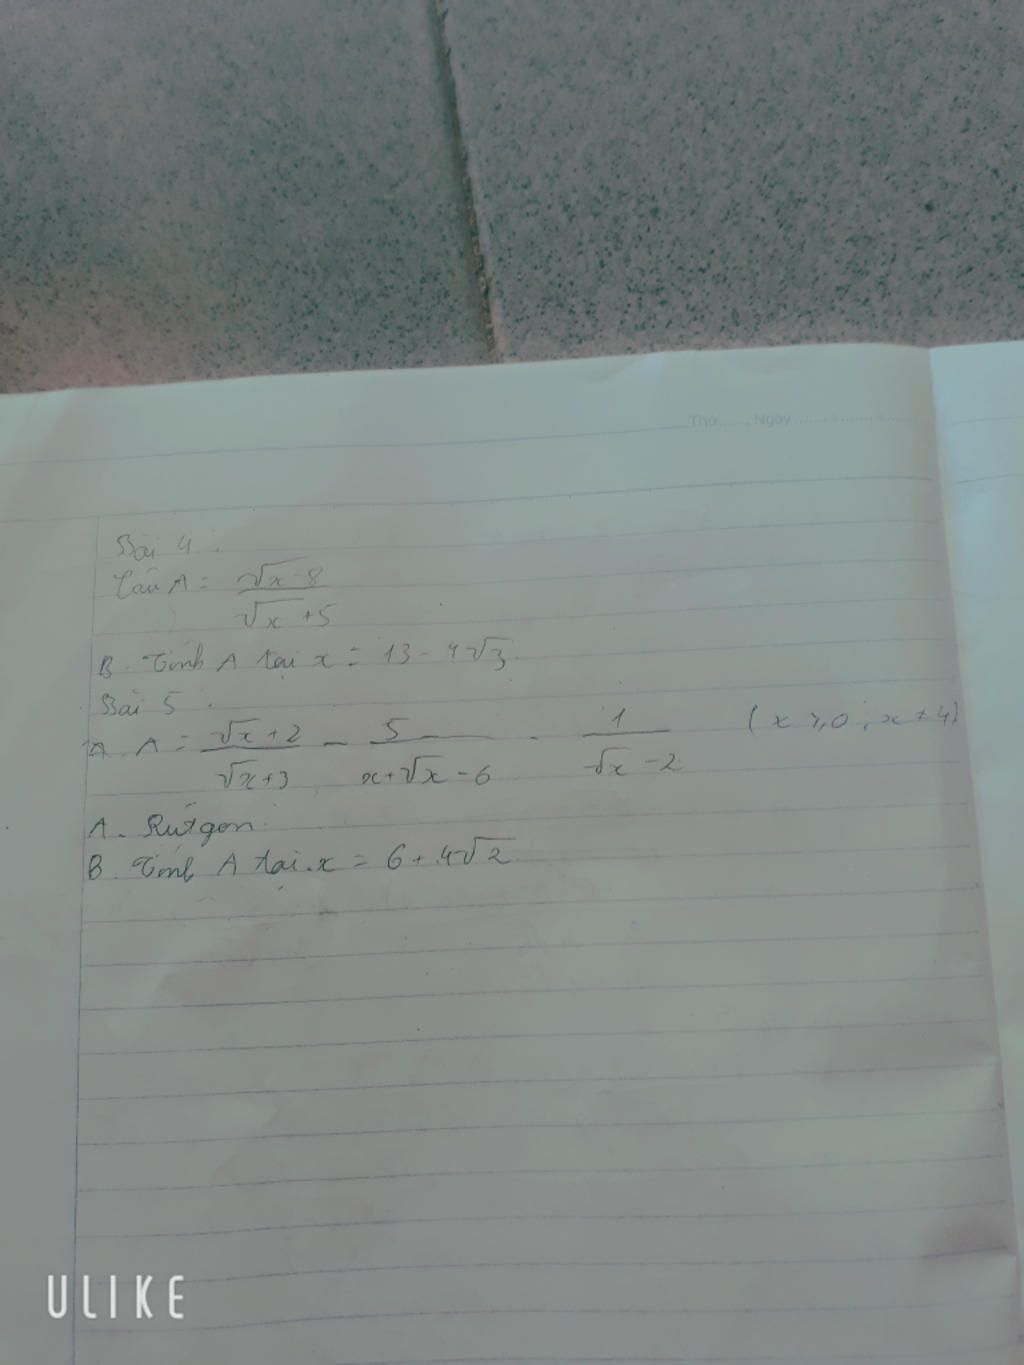 Thứ ...... Ngày ..............
Bài 4 :
Câu A = √x - 8 / √x + 5
B. Tính A tại x = 13 - 4√3
Bài 5 :
A. A = √x + 2 / √x + 3 - 5 / x + √x - 6 - 1 / √x - 2 ( x ≥ 0 ; x ≠ 4)
A. Rút gọn
B. Tính A tại x = 6 + 4√2
ULIKE